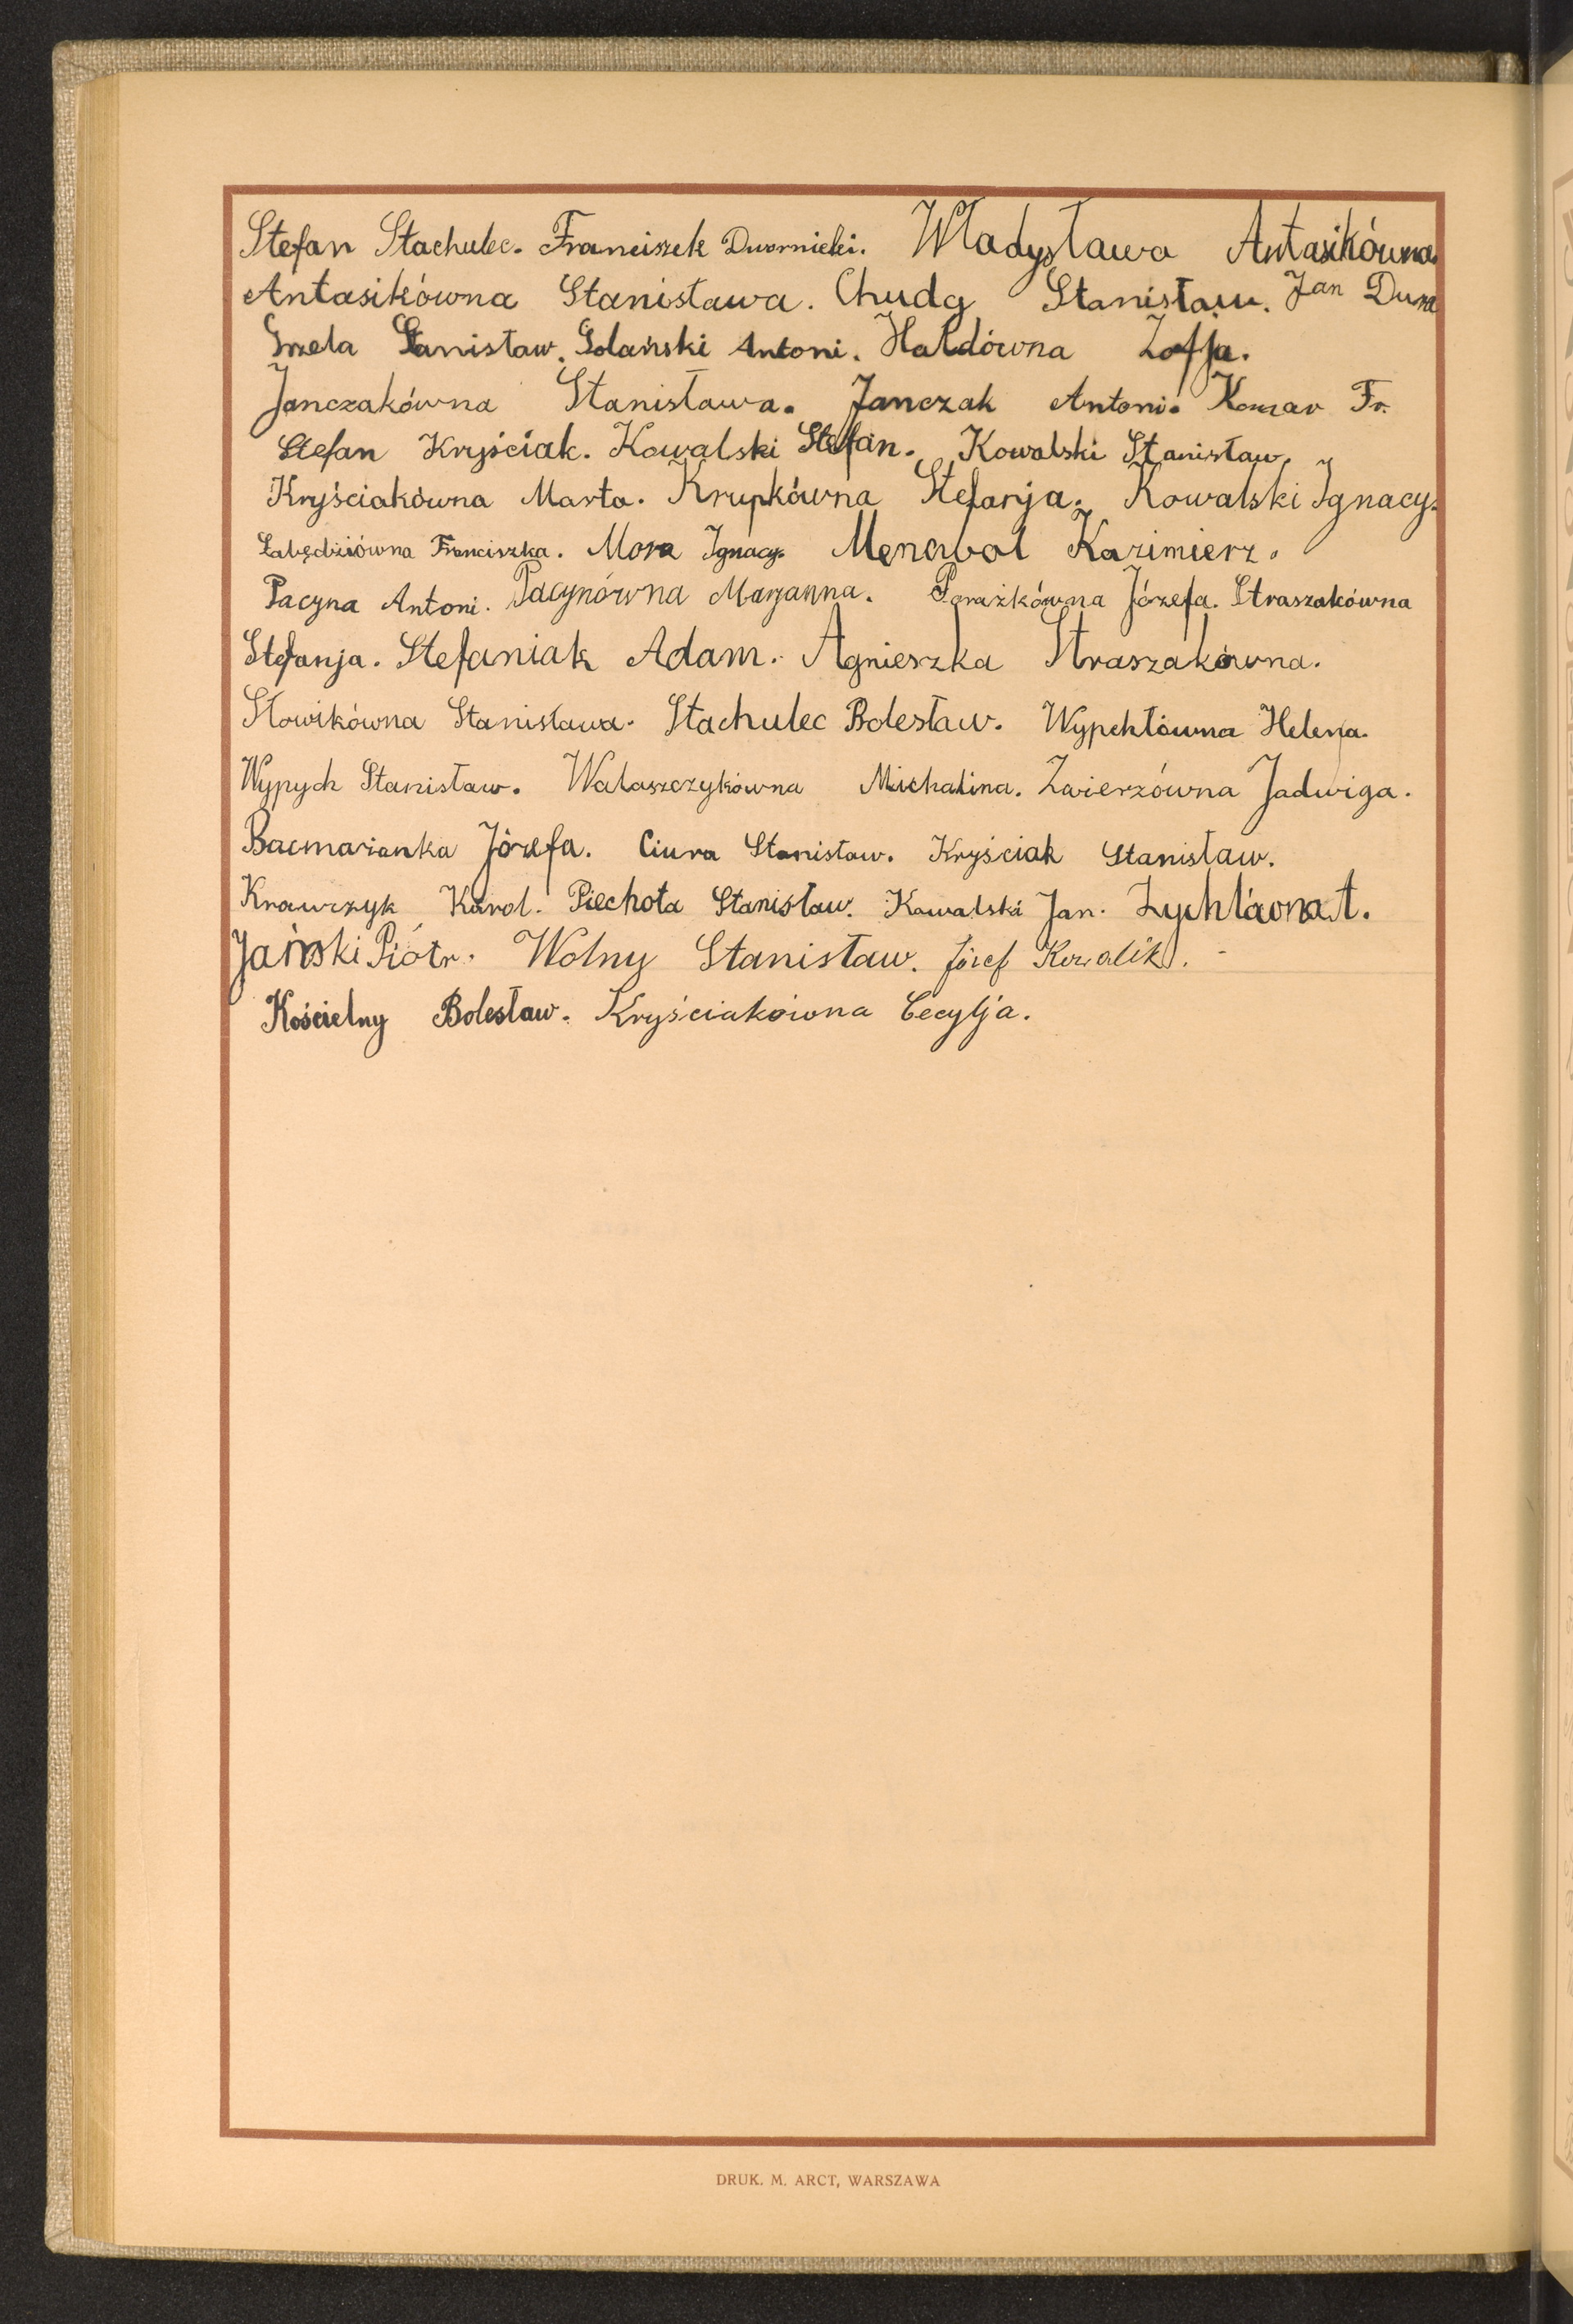 Stefan Stachulec. Franciszek Dwornicki. Władysława Antasikówna.
Antasikówna Stanisława. Chudy Stanisław. Jan Dura
Grzela Stanisław. Golański Antoni. Hałdówna Zofja.
Janczakówna Stanisława. Janczak Antoni. Fr.
Stefan Kryściak. Kowalski Stefan. Kowalski Stanisław.
Kryściakówna Marta. Krupkówna Stefanja. Kowalski Ignacy.
Łabędziówna Franciszka. Mora Ignacy. Kazimierz.
Pacyna Antoni. Pacynówna Marjanna. Józefa. Straszakówna
Stefanja. Stefaniak Adam. Agnieszka Straszakówna.
Słowikówna Stanisława. Stachulec Bolesław. Wypchłówna Helena.
Wypych Stanisław. Walaszczykówna Michalina. Zwierzówna Jadwiga.
Bacmarianka Józefa. Ciura Stanisław. Kryściak Stanisław.
Krawczyk Karol. Piechota Stanisław. Kowalski Jan. A.
Jański Piótr. Wolny Stanisław. Józef Kowalik.
Kościelny Bolesław. Kryściakówna Cecylja.
DRUK. M. ARCT, WARSZAWA